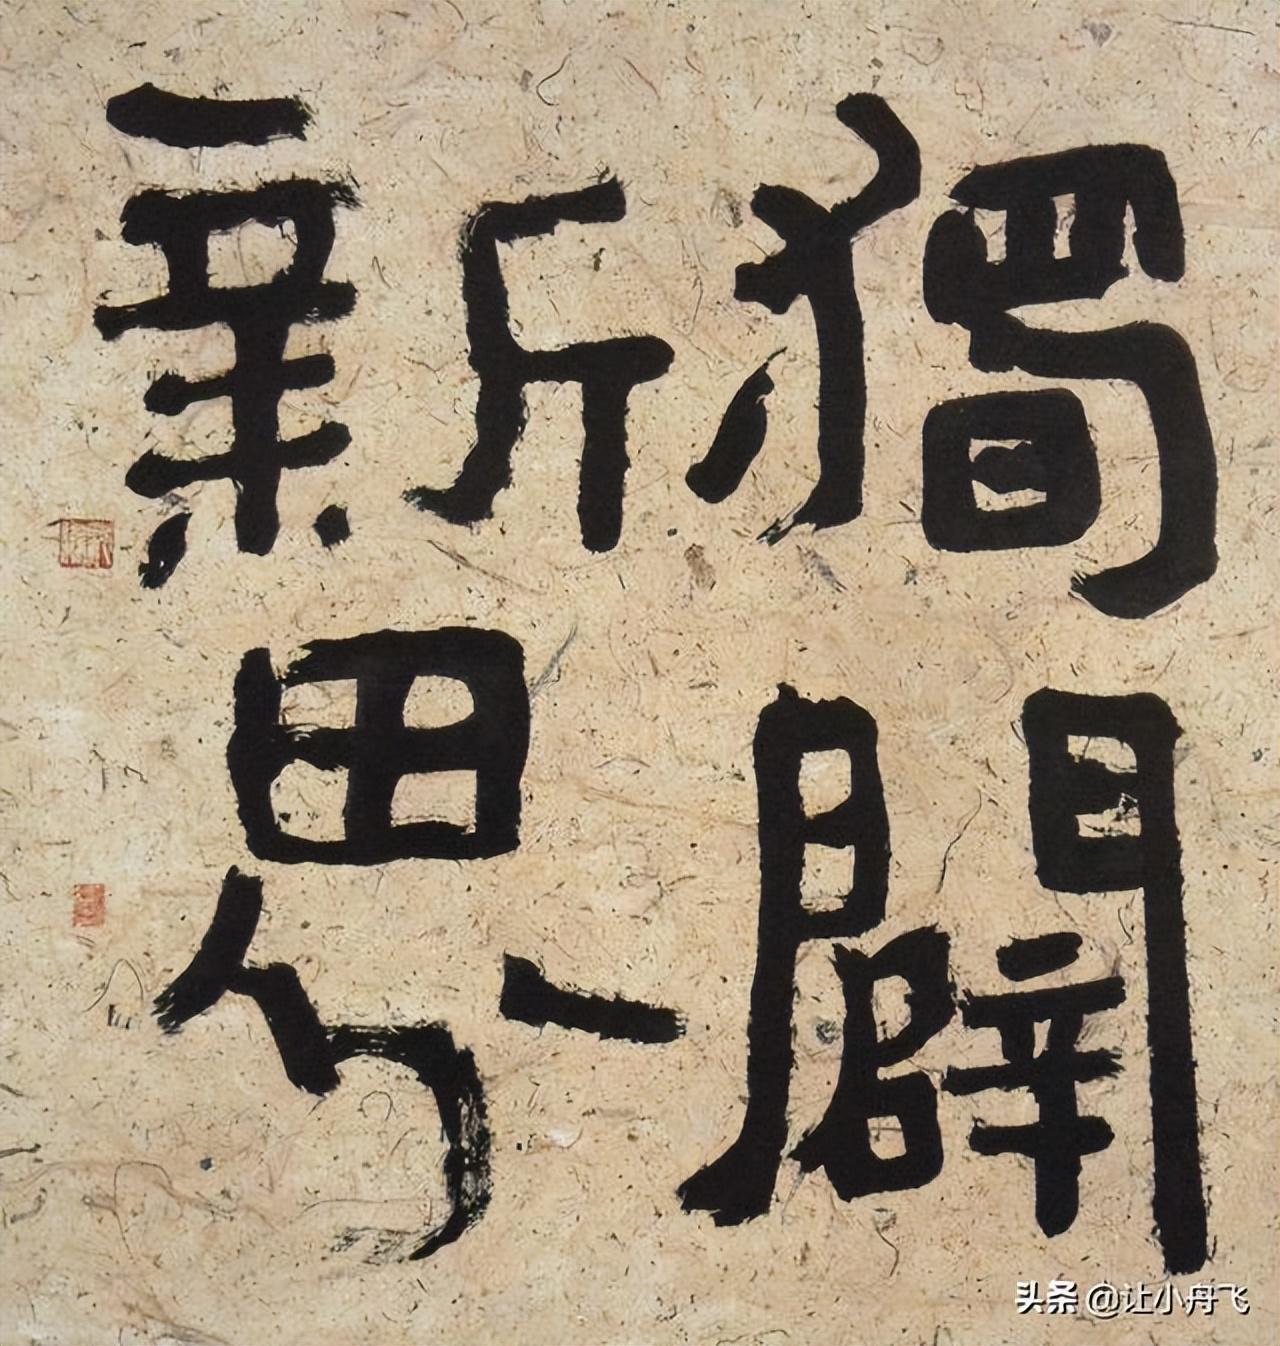 獨闢
新思
头条 @让小舟飞